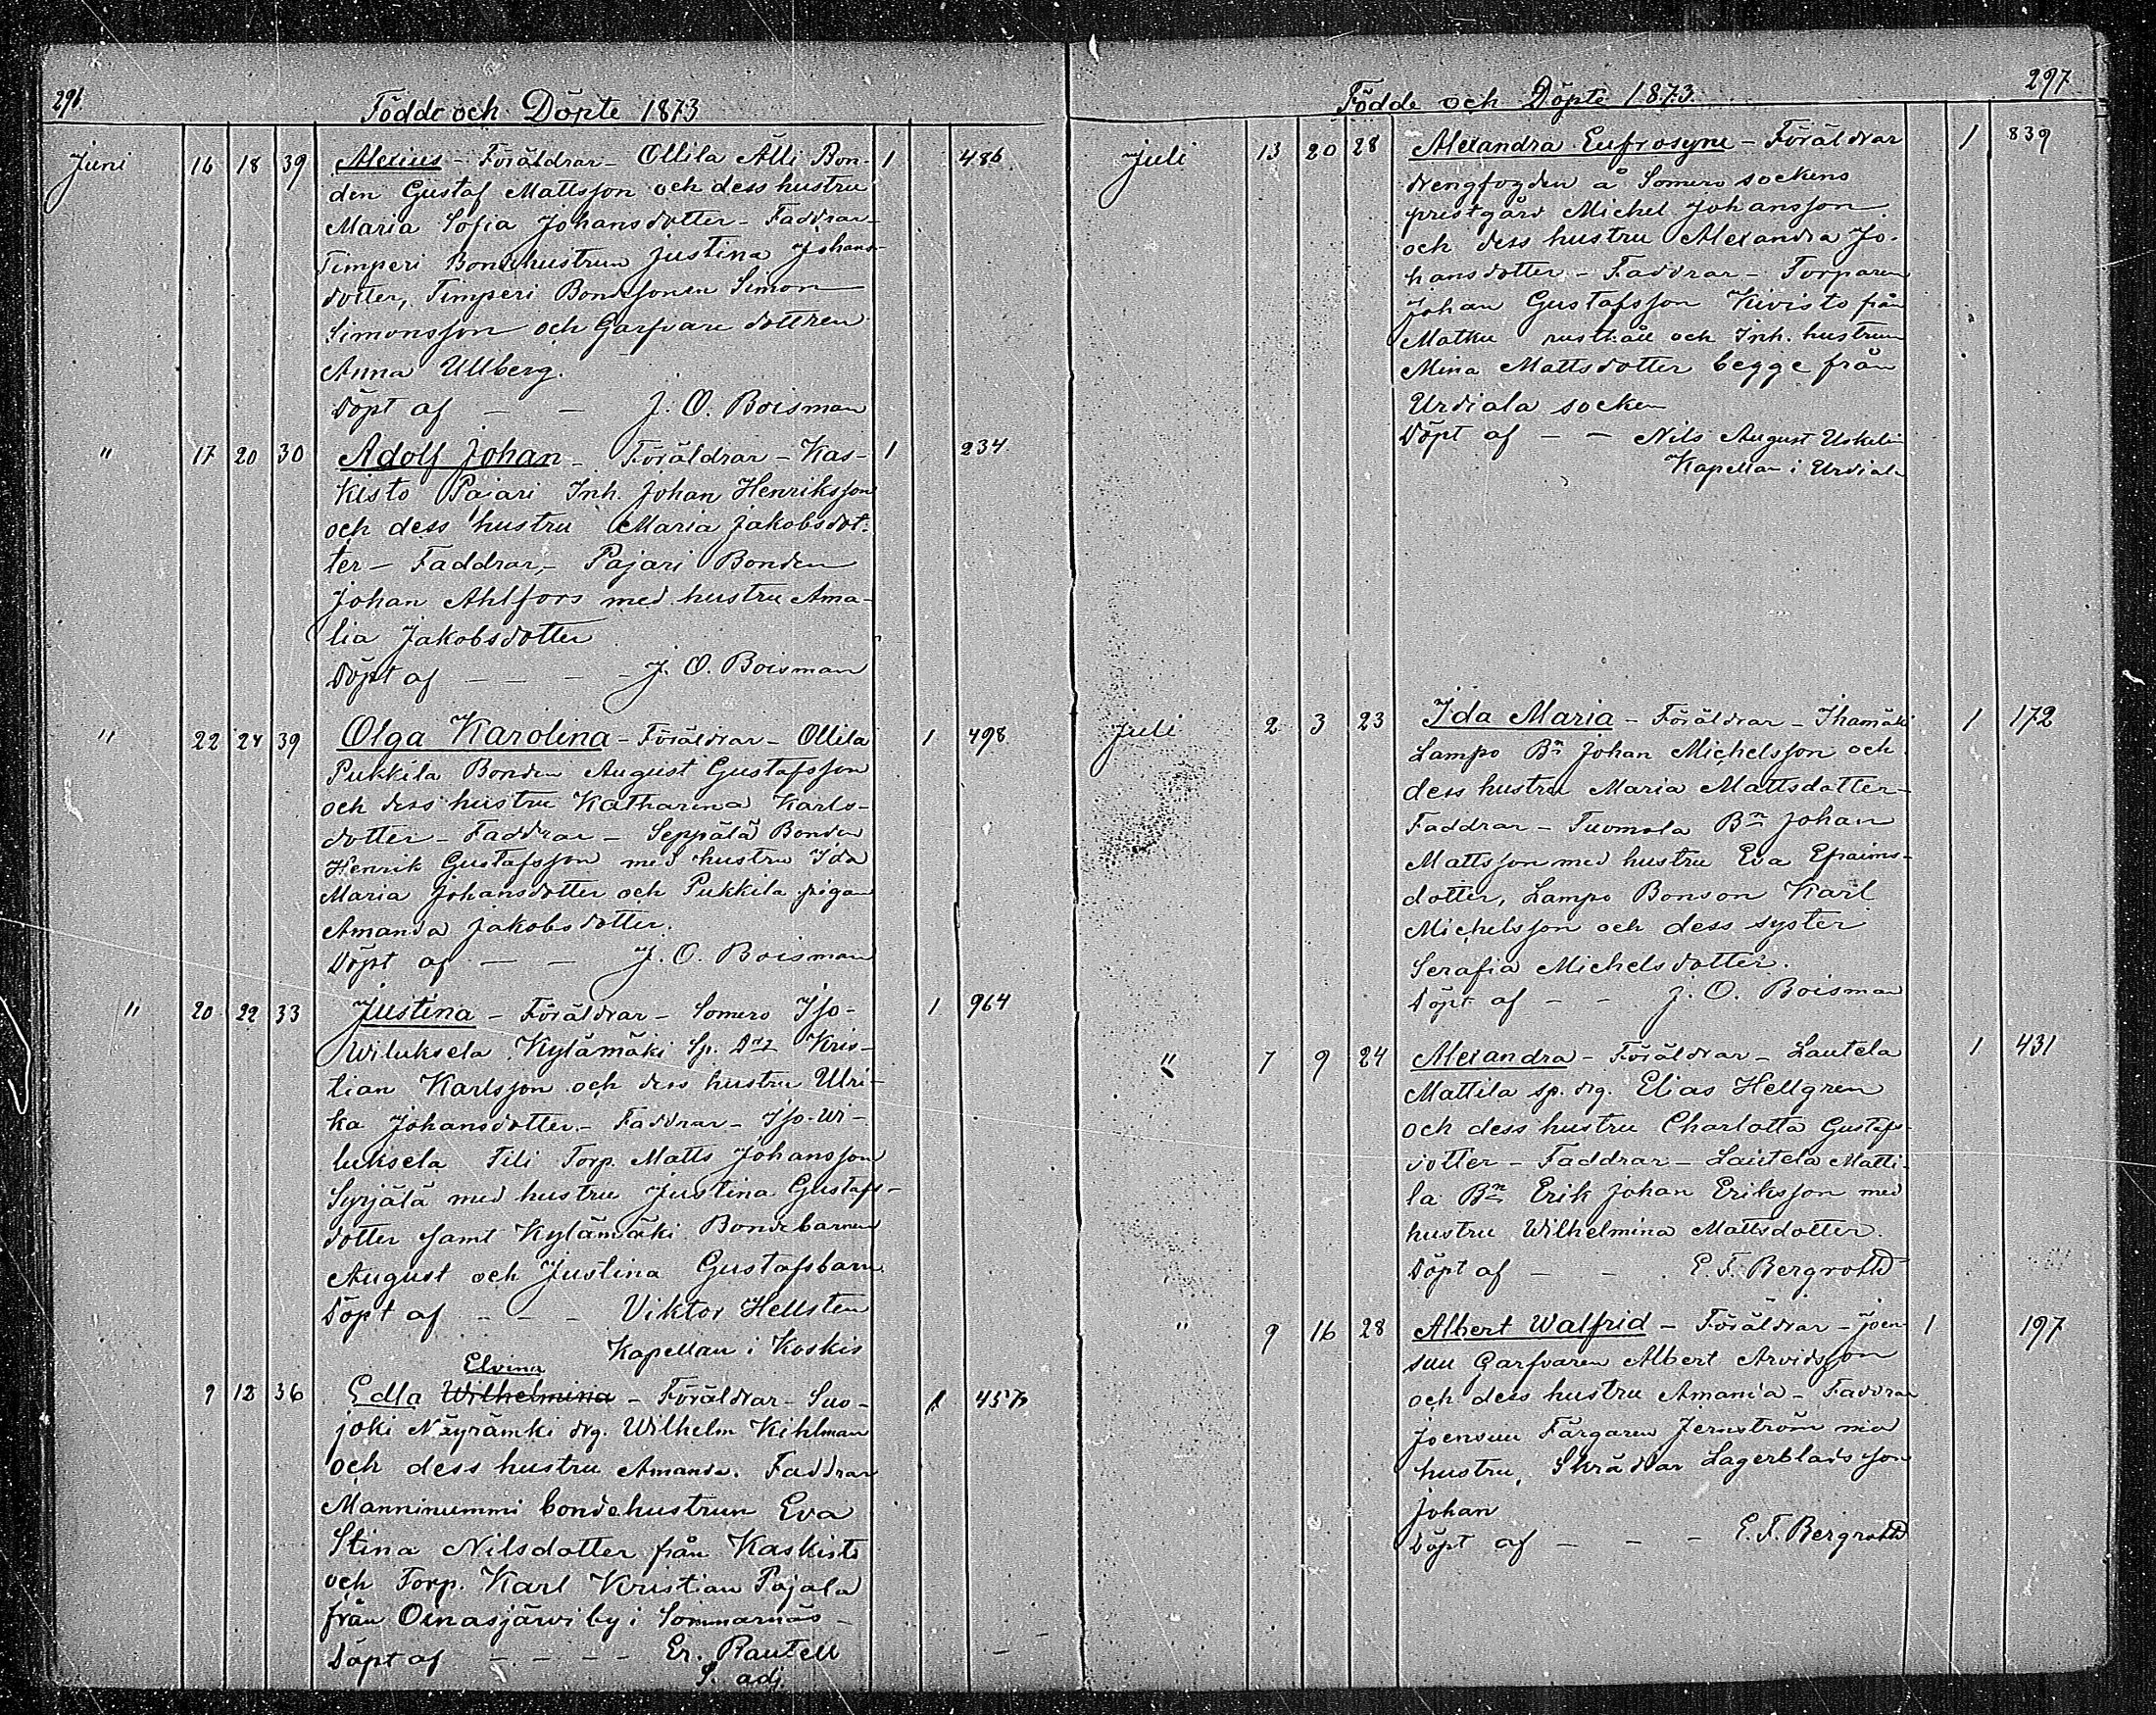 296.
Födde och Döpte 1873
Juni 16 18 39 Alexius - Föräldrar - Ollila Alli Bon- 1 486
den Gustaf Mattsson och dess hustru
Maria Sofia Johansdotter - Faddrar -
Timperi Bondehustrun Justina Johans-
dotter, Timperi Bondesonen Simon
Simonsson och Garfvare dottren
Anna Ullberg.
Döpt af - - J. O. Boisman
" 17 20 30 Adolf Johan - Föräldrar - Kas- 1 234
kisto Pajari Inh. Johan Henriksson
och dess hustru Maria Jakobsdot.
ter - Faddrar, - Pajari Bonden
Johan Ahlfors med hustru Ama-
lia Jakobsdotter
Döpt af - - - - J. O. Boisman
" 22 24 39 Olga Karolina - Föräldrar - Ollila 1 498
Pukkila Bonden August Gustafsson
och dess hustru Katharina Karls-
dotter - Faddrar - Seppälä Bonden
Henrik Gustafsson med hustru Ida
Maria Johansdotter och Pukkila pigan
Amanda Jakobsdotter.
Döpt af - - J. O. Boisman
" 20 22 33 Justina - Föräldrar - Somero Iso- 1 964
Wiluksela Kylämäki Sp. Kris-
tian Karlsson och dess hustru Ulri-
ka Johansdotter. - Faddrar - Iso-Wi-
luksela Tili Torp. Matts Johansson
Syrjälä med hustru Justina Gustafs-
dotter samt Kylämäki Bondebarnen
August och Justina Gustafsbarn
Döpt af - - - Viktor Hellsten
Kapellan i Koskis
Elvina
9 12 36 Edla Wilhelmina - Föräldrar - Suo- 1 457
joki drg. Wilhelm Kihlman
och dess hustru Amanda. Faddrar
Manninummi bondehustrun Eva
Stina Nilsdotter från Kaskisto
och Torp. Karl Kristian Pajala
från Oinasjärwi by i Sommarnäs -
Döpt af - - - - Er. Rautell
P. adj.
297
Födde och Döpte 1873.
Juli 13 20 28 Alexandra Eufrosyne - Föräldrar 1 839
drengfogden å Somero sockens
prestgård Michel Johansson
och dess hustru Alexandra Jo-
hansdotter - Faddrar - Torparen
Johan Gustafsson Kivisto från
Matku rusthåll och Inh. hustrun
Mina Mattsdotter begge från
Urdiala socken
Döpt af - - Nils August Uskelin
Kapellan i Urdiala
Juli 2 3 23 Ida Maria - Föräldrar - Ihamäki 1 172
Lampo Bn Johan Michelsson och
dess hustru Maria Mattsdotter -
Faddrar - Tuomola Bn Johan
Mattsson med hustru Eva Efraims-
dotter, Lampo Bonson Karl
Michelsson och dess syster
Serafia Michelsdotter.
Döpt af - - J. O. Boisman
" 7 9 24 Alexandra - Föräldrar - Lautela 1 431
Mattila sp. drg. Elias Hellgren
och dess hustru Charlotta Gustafs-
dotter - Faddrar - Lautela Matti-
la Bn Erik Johan Eriksson med
hustru Wilhelmina Mattsdotter.
Döpt af - - E. F. Bergroth
" 9 16 28 Albert Walfrid - Föräldrar - Joen- 1 197
suu Garfvaren Albert Arvidsson
och dess hustru Amanda - Faddrar
Joensuu Färgaren Jernström med
hustru, Skräddar Lagerblads son
Johan
Döpt af - - - E. F. Bergroth